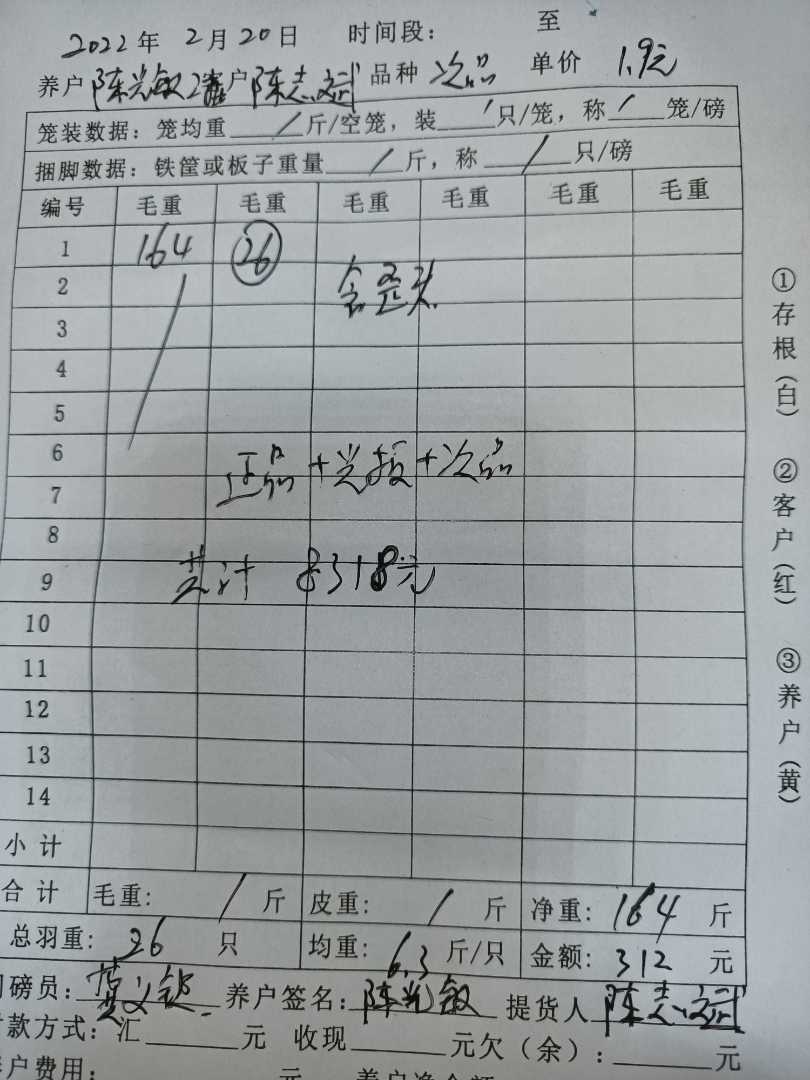 至
2022年 2月20日 时间段：
养户 陈光敏2 户 陈志斌 品种 次品 单价 1.9元
笼装数据：笼均重 / 斤/空笼，装 / 只/笼，称 / 笼/磅
捆脚数据：铁筐或板子重量 / 斤，称 / 只/磅
编号 毛重 毛重 毛重 毛重 毛重 毛重
1 164 26
2 含歪头
3
4
5
6 正品+光板+次品
7
8
9 共计 8318元
10
11
12
13
14
小计
合计 毛重： / 斤 皮重： / 斤 净重：164 斤
总羽重：26 只 均重：6.3 斤/只 金额：312 元
磅员： 养户签名：陈光敏 提货人 陈志斌
款方式：汇 元 收现 元欠（余）： 元
户费用： 元
①存根（白） ②客户（红） ③养户（黄）